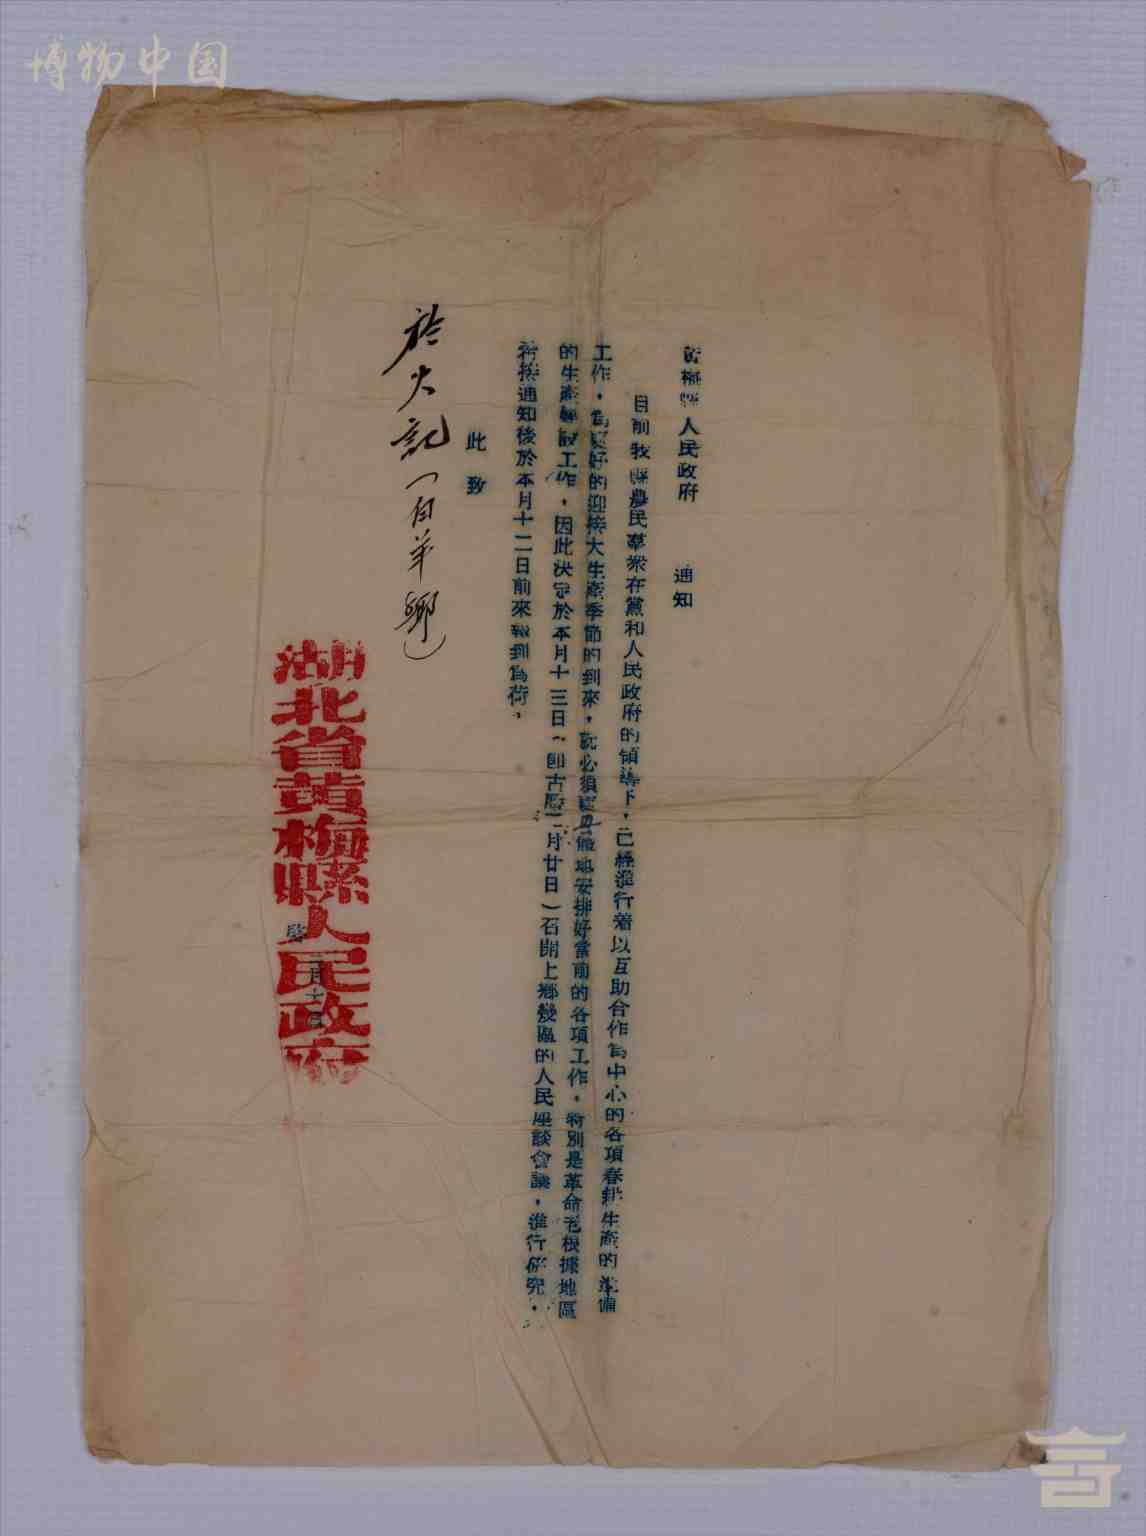 博物中国
黄梅縣人民政府　通知
目前我縣農民羣衆在黨和人民政府的領導下，已經進行着以互助合作爲中心的各項春耕生產的準備
工作，爲更好的迎接大生產季節的到來，就必須更具體地安排好當前的各項工作，特別是革命老根據地區
的生產建設工作，因此决定於本月十三日（即古歷二月廿日）召開上鄉幾區的人民座談會議，進行研究，
希接通知後於本月十二日前來報到爲荷。
此致
於火記（白羊鄉）
湖北省黄梅縣人民政府
月十日